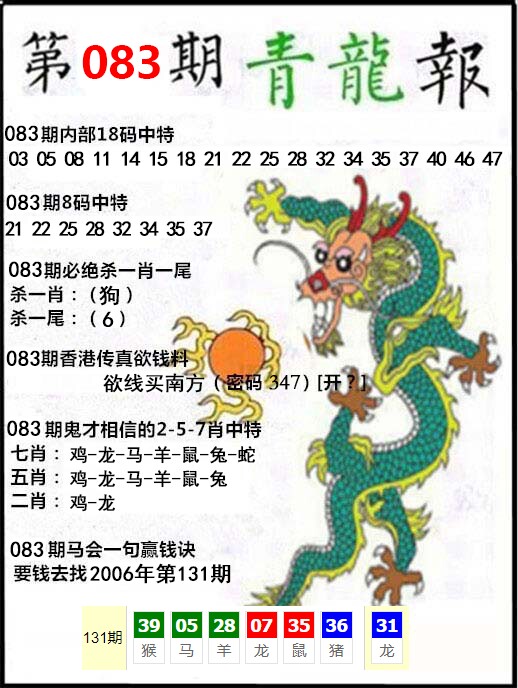 第083期 青龍報
083期内部18码中特
03 05 08 11 14 15 18 21 22 25 28 32 34 35 37 40 46 47
083期8码中特
21 22 25 28 32 34 35 37
083期必绝杀一肖一尾
杀一肖：（狗）
杀一尾：（6）
083期香港传真欲钱料
欲线买南方（密码 347）[开？]
083期鬼才相信的2-5-7肖中特
七肖：鸡-龙-马-羊-鼠-兔-蛇
五肖：鸡-龙-马-羊-鼠-兔
二肖：鸡-龙
083期马会一句赢钱诀
要钱去找2006年第131期
131期 39 05 28 07 35 36 31
猴 马 羊 龙 鼠 猪 龙